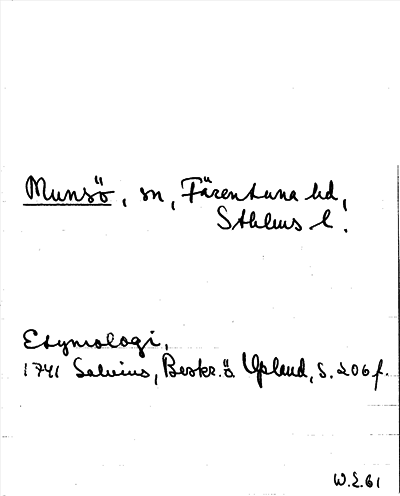 Munsö, sn, Färentuna hd,
Sthlms l.
Etymologi,
1741 Salvius, Beskr. ö. Upland, s. 206 f.
W.L. 61